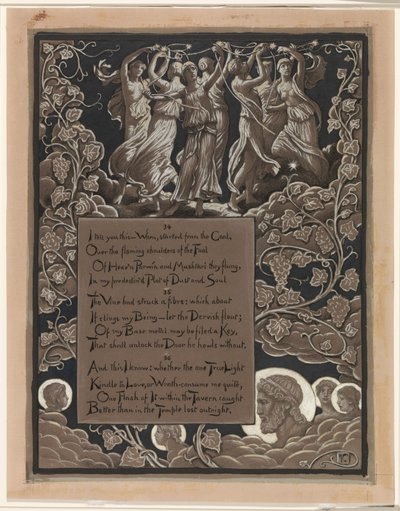 34
I tell you this—When, started from the Goal,
Over the flaming shoulders of the Foal
Of Heav'n Parwin and Mushtari they flung,
In my predestin'd Plot of Dust and Soul
35
The Vine had struck a fibre: which about
If clings my Being—let the Dervish flout;
Of my Base metal may be filed a Key,
That shall unlock the Door he howls without.
36
And this I know: whether the one True Light
Kindle to Love, or Wrath-consume me quite,
One Flash of It within the Tavern caught
Better than in the Temple lost outright.